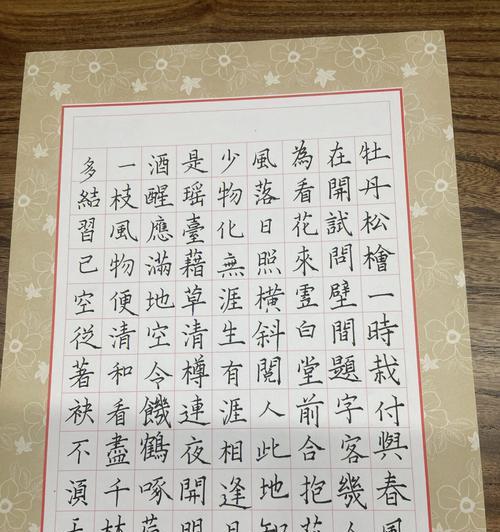 牡丹松檜一時栽付與春風
在開試問壁間題字客幾
為看花來雲白堂前合抱
風落日照橫斜閱人此地知
少物化無涯生有涯相逢日
是瑶臺藉草清樽連夜開明
酒醒應滿地空令饑鶴啄莓
一枝風物便清和看盡千林
多結習已空從著袂不湏天